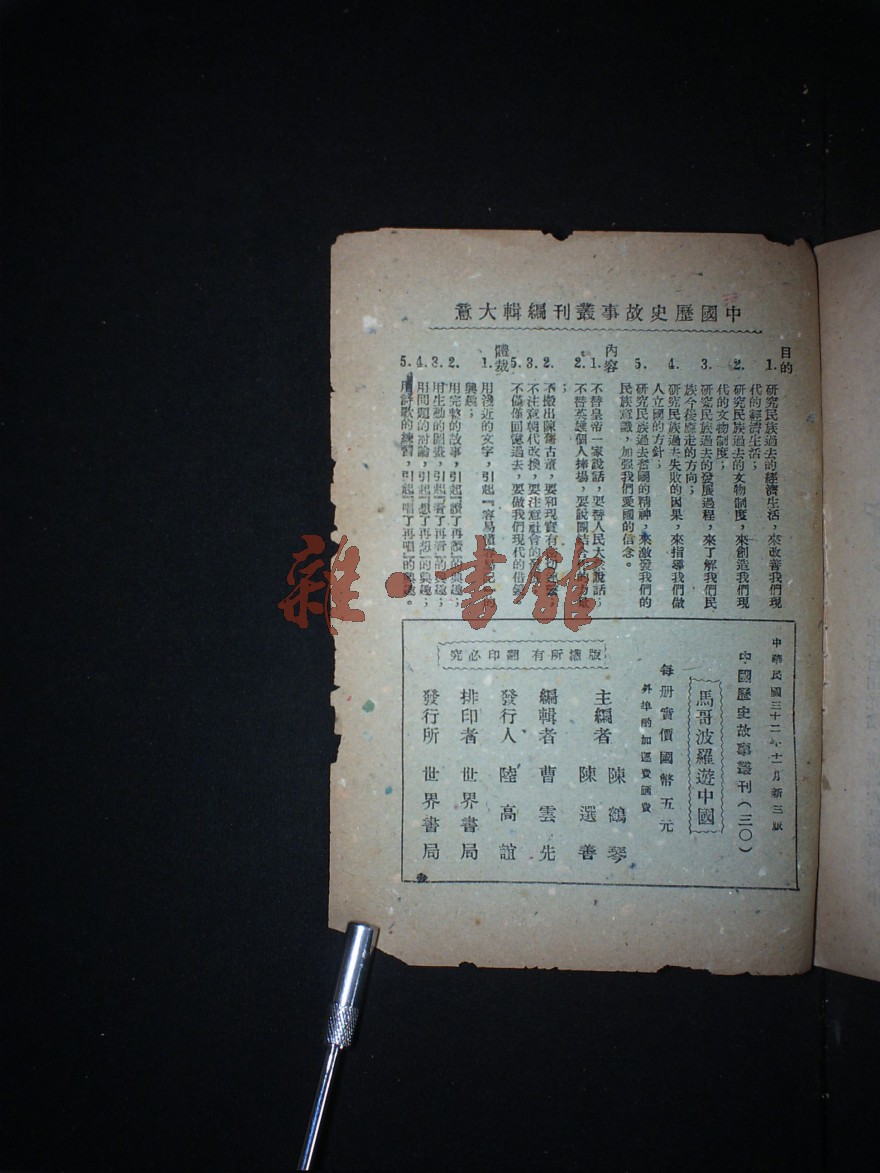 中國歷史故事叢刊編輯大意
目的
1. 研究民族過去的經濟生活，來改善我們現
代的經濟生活；
2. 研究民族過去的文物制度，來創造我們現
代的文物制度；
3. 研究民族過去的發展過程，來了解我們民
族今後應走的方向；
4. 研究民族過去失敗的因果，來指導我們做
人立國的方針；
5. 研究民族過去奮鬥的精神，來激發我們的
民族意識，加强我們愛國的信念。
內容
1. 不替皇帝一家說話，要替人民大衆說話；
2. 不替英雄個人捧場，要說團結合作的功
；
2. 不搬出陳舊古董，要和現實有
3. 不注意朝代改換，要注意社會的
5. 不僅僅回憶過去，要做我們現代的借鏡
體裁
1. 用淺近的文字，引起『容易讀
興趣；
2. 用完整的故事，引起『讀了再讀』的興趣；
3. 用生動的圖畫，引起『看了再看』的興趣；
4. 用問題的討論，引起『想了再想』的興趣；
5. 用詩歌的練習，引起『唱了再唱』的興趣。
中華民國三十二年十一月新三版
中國歷史故事叢刊（三〇）
馬哥波羅遊中國
每册實價國幣五元
外埠酌加運費匯費
主編者 陳鶴琴
陳選善
編輯者 曹雲先
發行人 陸高誼
排印者 世界書局
發行所 世界書局
版權所有 翻印必究
雜·書館